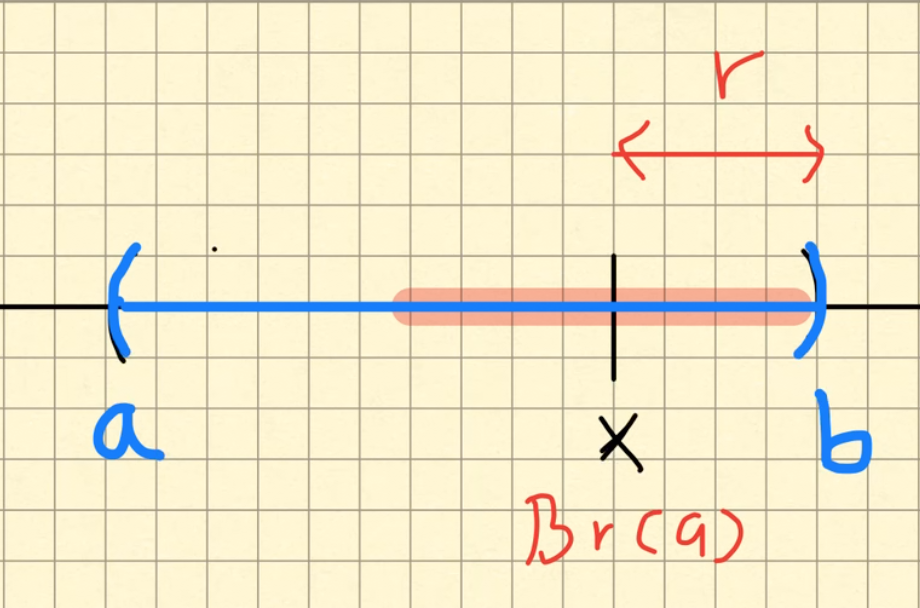 r
( )
a x b
Br(a)